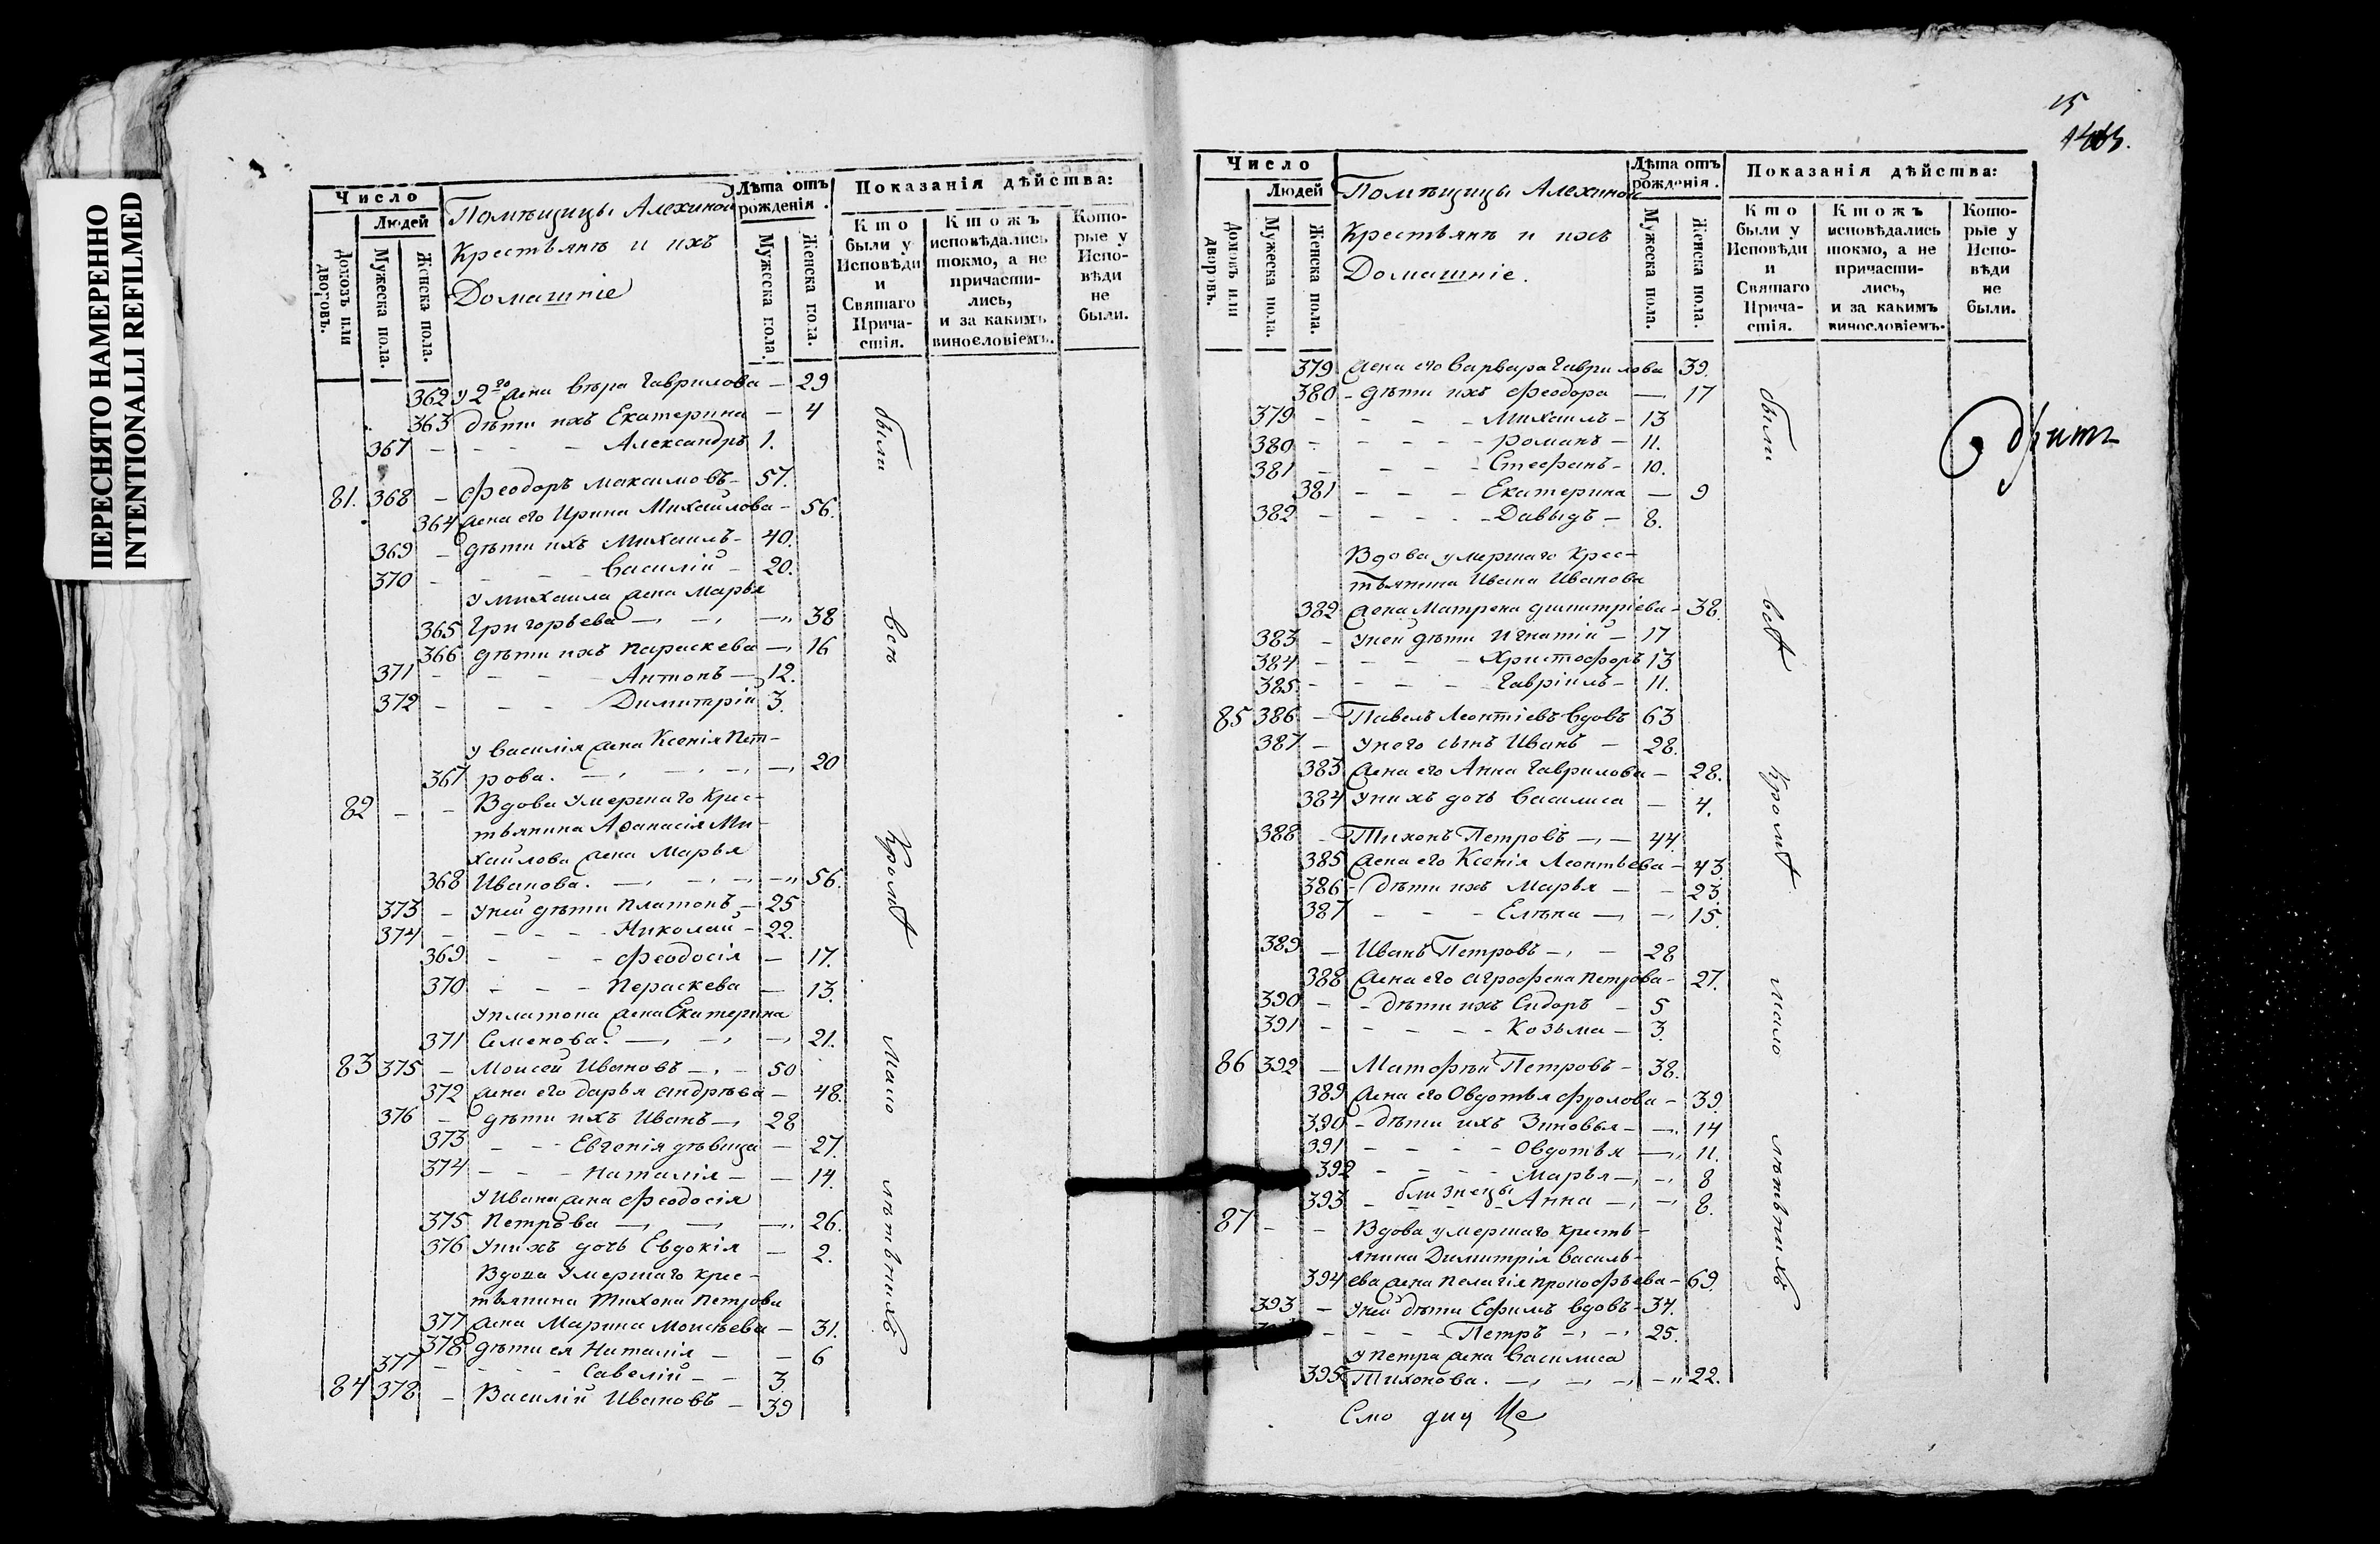 ПЕРЕСНЯТО НАМЕРЕННО
INTENTIONALLI REFILMED
Число
Людей
Домовъ или дворовъ.
Мужеска пола.
Женска пола.
Помѣщицы Алехиной
Крестьянъ и ихъ
Домашніе
Лѣта отъ рожденія.
Мужеска пола.
Женска пола.
Показанія дѣйства:
Кто были у Исповѣди и Святаго Причастія.
Ктожъ исповѣдались токмо, а не причастились, и за какимъ винословіемъ.
Которые у Исповѣди не были.
362 у 2го жена Вѣра Гаврилова — 29
363 дѣти ихъ Екатерина — 4
367 - - - - Александръ 1.
81. 368 - Феодоръ Максимовъ - 57.
364 жена его Ирина Михайлова - 56.
369 - дѣти ихъ Михаилъ - 40.
370 - - - - Василій - 20.
у Михаила жена Марья
365 Григорьева — 38
366 дѣти ихъ Параскева — 16
371 - - - - Антонъ — 12.
372 - - - Димитрій 3.
у Василія жена Ксенія Пет-
367 рова. — 20
82 - - Вдова умершаго крес-
тьянина Афанасія Ми-
хайлова жена Марья
368 Иванова. — 56.
373 - у ней дѣти Платонъ - 25
374 - - - - Николай - 22.
369 - - - Феодосія — 17.
370 - - - Пераскева — 13.
у Платона жена Екатерина
371 Семенова. — 21.
83 375 - Моисей Ивановъ - 50
372 жена его Дарья Андрѣева — 48.
376 - дѣти ихъ Иванъ — 28
373 - - - Евгенія дѣвица - 27.
374 - - - Наталія - - 14.
у Ивана жена Феодосія
375 Петрова — 26.
376 у нихъ дочь Евдокія — 2.
Вдова умершаго крес-
тьянина Тихона Петрова
377 жена Марина Моисѣева - 31.
378 дѣти ея Наталія - - 6
377 - - - - Савелій - - 3
84 378 - Василій Ивановъ - 39
были
всѣ
кромѣ
мало
лѣтнихъ
15
Число
Людей
Домовъ или дворовъ.
Мужеска пола.
Женска пола.
Помѣщицы Алехиной
Крестьянъ и ихъ
Домашніе.
Лѣта отъ рожденія.
Мужеска пола.
Женска пола.
Показанія дѣйства:
Кто были у Исповѣди и Святаго Причастія.
Ктожъ исповѣдались токмо, а не причастились, и за какимъ винословіемъ.
Которые у Исповѣди не были.
379 жена его Варвара Гаврилова 39.
380 - дѣти ихъ Феодора — 17
379 - - - - Михаилъ - 13
380 - - - - Романъ — 11.
381 - - - - Стефанъ - 10.
381 - - - Екатерина — 9
382 - - - - Давыдъ - 8.
Вдова умершаго крес-
тьянина Ивана Иванова
382 жена Матрена Димитріева - 38.
383 - у ней дѣти Игнатій - 17
384 - - - - Христофоръ 13
385 - - - - Гавріилъ - 11.
85 386 - Павелъ Леонтіевъ вдовъ 63
387 - у него сынъ Иванъ - 28.
383 жена его Анна Гаврилова — 28.
384 у нихъ дочь Василиса — 4.
388 - Тихонъ Петровъ — 44.
385 жена его Ксенія Леонтьева - 43
386 - дѣти ихъ Марья — 23.
387 - - - Елѣна — 15.
389 - Иванъ Петровъ — 28
388 жена его Агрофена Петрова - 27.
390 - - дѣти ихъ Сидоръ - 5
391 - - - - - Козьма - 3.
86 392 - Матофѣй Петровъ - 38.
389 жена его Овдотья Фролова - 39.
390 - дѣти ихъ Зиновья — 14
391 - - - - Овдотья — 11.
392 - - - - Марья — 8
393 - близнецы Анна — 8.
87 - - Вдова умершаго кресть-
янина Димитрія Василь-
394 ева жена Пелагія Прокофьева - 69.
393 - у ней дѣти Ефимъ вдовъ - 34.
- - - - Петръ — 25.
у Петра жена Василиса
395 Тихонова. — 22.
были
всѣ
кромѣ
мало
лѣтнихъ